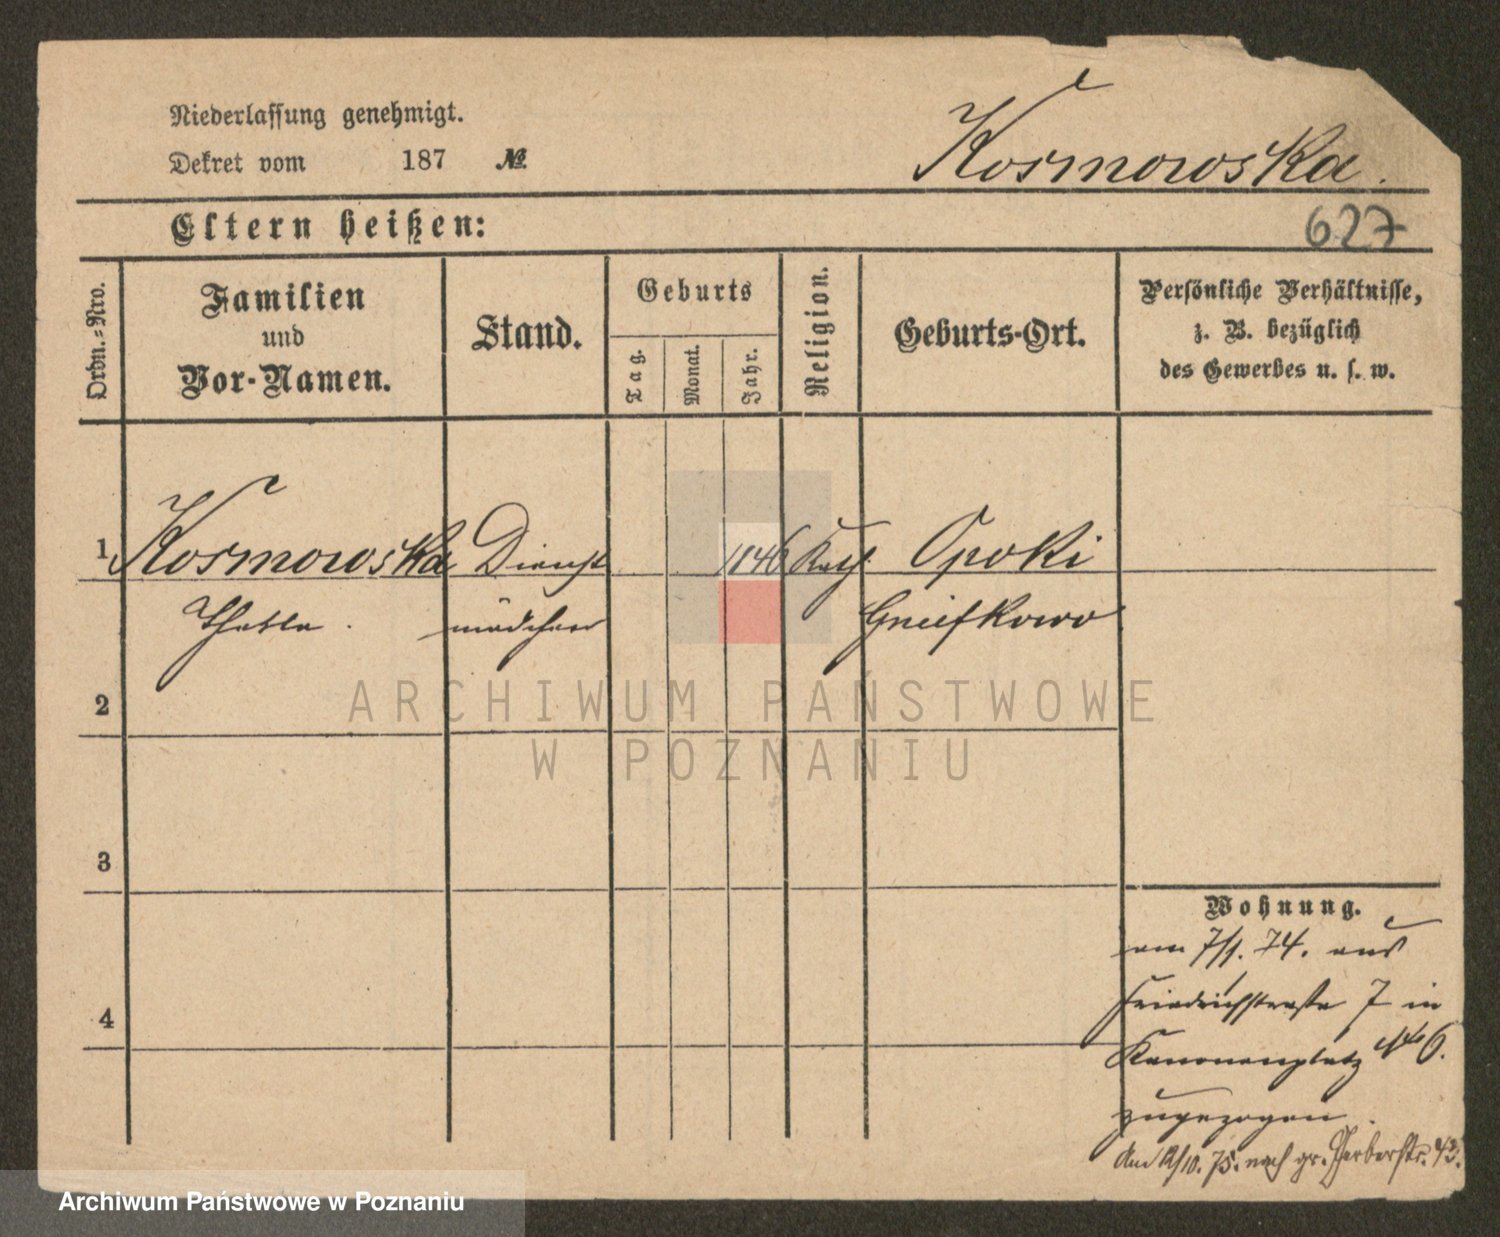 Niederlassung genehmigt.
Dekret vom 187 №
Kosmowska.
Eltern heißen:
627
Ordn.=Nro.
Familien
und
Vor-Namen.
Stand.
Geburts
Tag.
Monat.
Jahr.
Religion.
Geburts-Ort.
Persönliche Verhältnisse,
z. B. bezüglich
des Gewerbes u. s. w.
1 Kosmowska Dienst 1846 Kath. Opoki
Thekla. mädchen Gniefkowo
2
3
4
Wohnung.
am 7/1. 74. aus
Friedrichstraße 7 in
Kanonenplatz No 6.
zugezogen.
Am 12/10. 75. nach gr. Gerberstr. 43.
ARCHIWUM PAŃSTWOWE
W POZNANIU
Archiwum Państwowe w Poznaniu